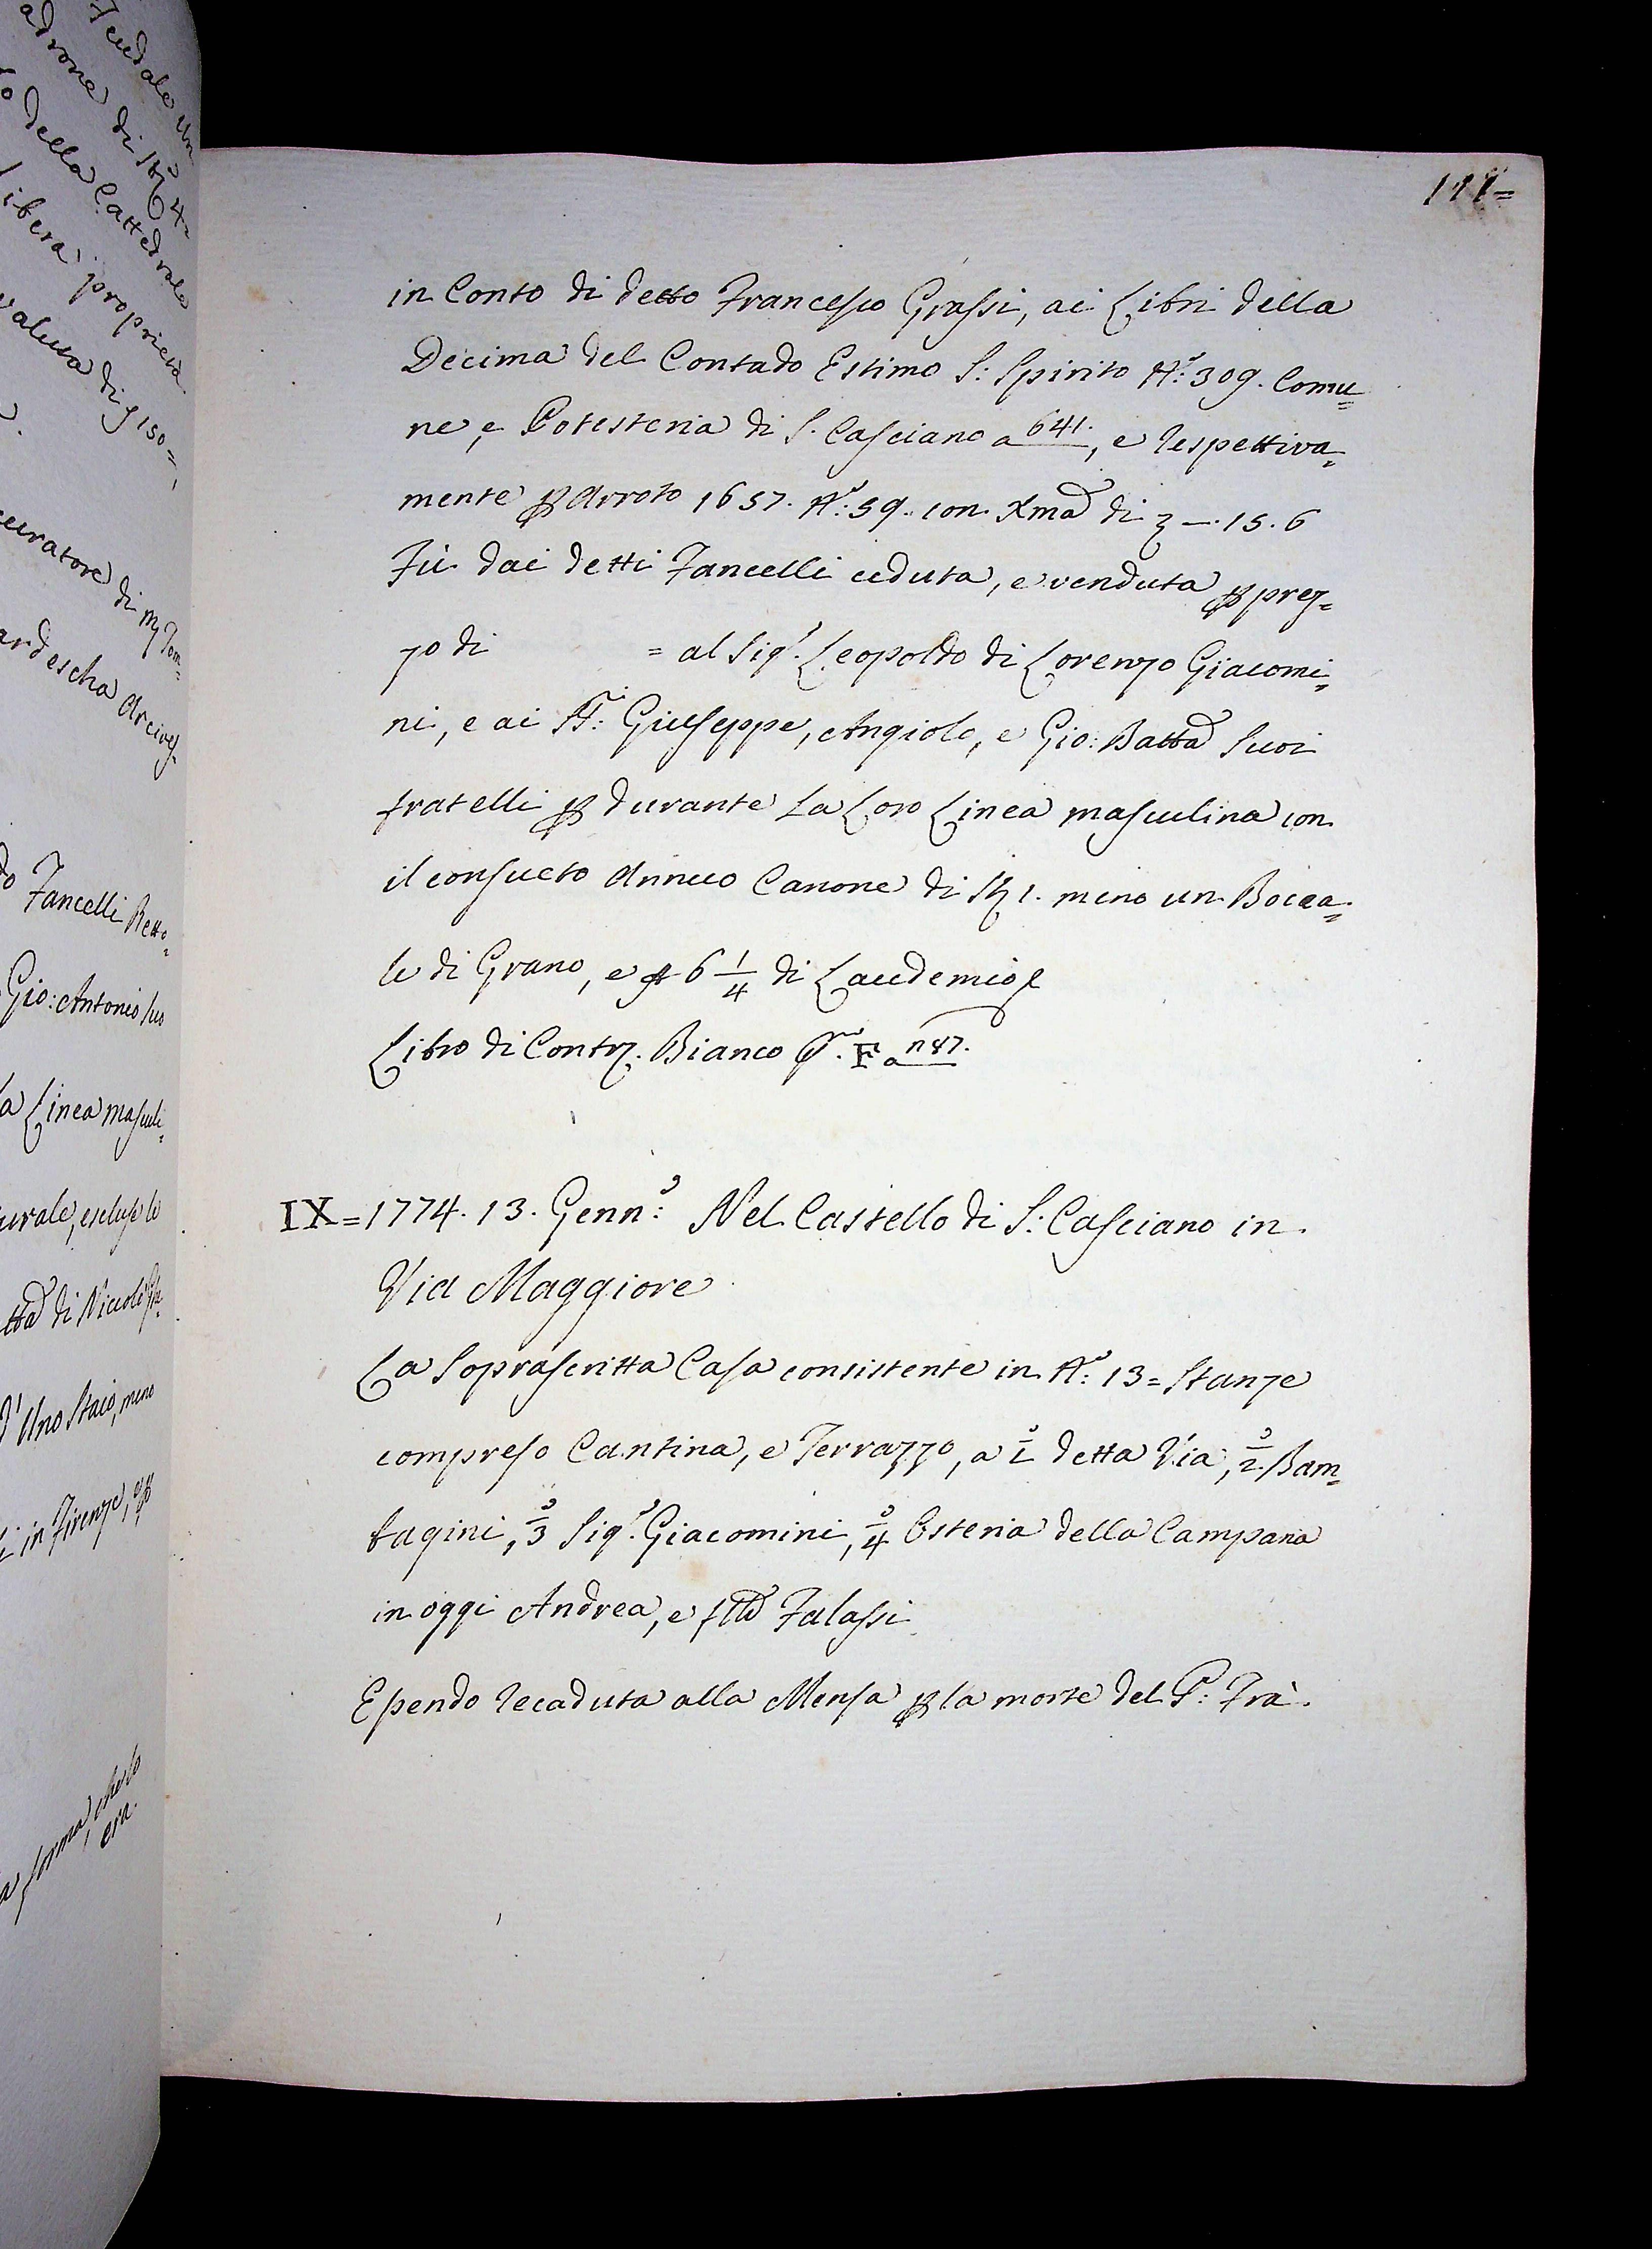 111=
in Conto di detto Francesco Grassi, ai Libri della
Decima del Contado Estimo S: Spirito N.º: 309. Comu=
ne, e Potesteria di S. Casciano a 641., e respettiva=
mente p Arroto 1657. N.º: 59. con Xma di 3 —. 15. 6
Fù dai detti Fancelli ceduta, e venduta p prez=
zo di = al Sig.r Leopoldo di Lorenzo Giacomi=
ni, e ai FF: Giuseppe, Angiolo, e Gio: Batta Suoi
fratelli p durante La Loro Linea masculina con
il consueto Annuo Canone di St 1. meno un Bocca=
le di Grano, e 6 1/4 di Laudemio
Libro di Contr. Bianco F a
IX= 1774. 13. Genn.º: Nel Castello di S: Casciano in
Via Maggiore
La Soprascritta Casa consistente in N.º: 13= Stanze
compreso Cantina, e Terrazzo, a º1 detta Via, º2 Bam=
bagini, º3 Sig.r Giacomini, º4 Osteria della Campana
in oggi Andrea, e flli Falassi
Essendo recaduta alla Mensa p la morte del P: Frà
Feudale un
adrone di St 4=
o della Cattedrale
libera proprietà
valuta di 150=,
curatore di M
ardescha Arcives
do Fancelli Retto=
Gio: Antonio suo
a Linea masculi=
urale, escluse le
tta di Niccolò
d' Uno Staio, meno
i in Firenze, e p
a forma, che lo
era.